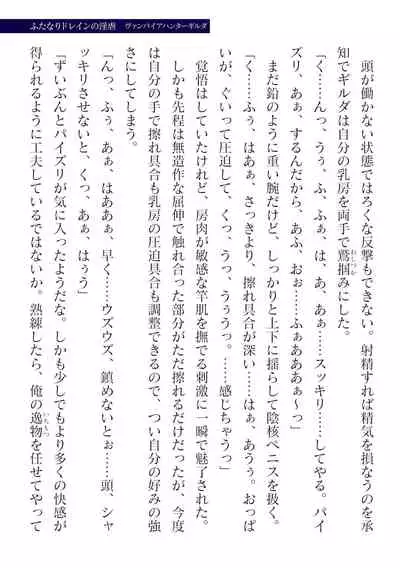 ふたなりドレインの淫虐　ヴァンパイアハンターギルダ
　頭が働かない状態ではろくな反撃もできない。射精すれば精気を損なうのを承
知でギルダは自分の乳房を両手で鷲掴みにした。
「く……んっ、うぅ、ふ、ふぁ、は、あ、あぁ……スッキリ……してやる。パイ
ズリ、あぁ、するんだから、あふ、おぉ……ふぁあああぁ～っ」
　まだ鉛のように重い腕だけど、しっかりと上下に揺らして陰核ペニスを扱く。
「く……ふぅ、はあぁ、さっきより、擦れ具合が深い……はぁ、あうぅ。おっぱ
いが、ぐいって圧迫して、くっ、うっ、うぅうっ。……感じちゃうっ」
　覚悟はしていたけれど、房肉が敏感な竿肌を撫でる刺激に一瞬で魅了された。
　しかも先程は無造作な屈伸で触れ合った部分がただ擦れるだけだったが、今度
は自分の手で擦れ具合も乳房の圧迫具合も調整できるので、つい自分の好みの強
さにしてしまう。
「んっ、ふぅ、あぁ、はああぁ、早く……ウズウズ、鎮めないとぉ……頭、シャ
ッキリさせないと、くっ、あぁ、はぅう」
「ずいぶんとパイズリが気に入ったようだな。しかも少しでもより多くの快感が
得られるように工夫しているではないか。熟練したら、俺の逸物を任せてやって